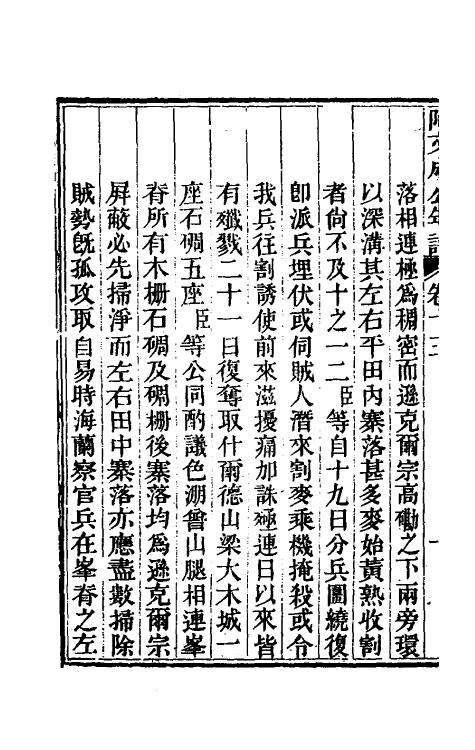 阿文成公年譜 卷十三
落相連極爲稠密而遜克爾宗高磡之下兩旁環
以深溝其左右平田內寨落甚多麥始黃熟收割
者尙不及十之一二臣等自十九日分兵圍繞復
卽派兵埋伏或伺賊人潛來割麥乘機掩殺或令
我兵往割誘使前來滋擾痛加誅殛連日以來皆
有殲戮二十一日復奪取什爾德山梁大木城一
座石碉五座臣等公同酌議色淜普山腿相連峯
脊所有木栅石碉及碉栅後寨落均爲遜克爾宗
屛蔽必先掃淨而左右田中寨落亦應盡數掃除
賊勢旣孤攻取自易時海蘭察官兵在峯脊之左